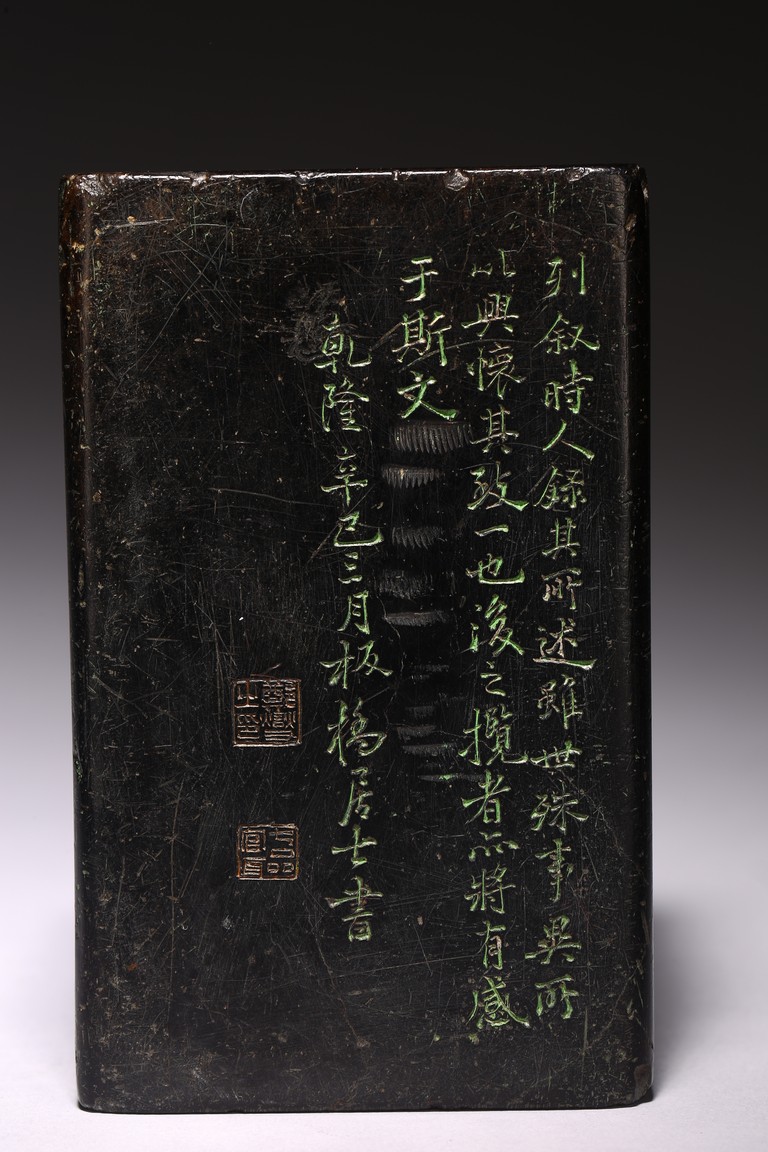 列叙時人録其所述雖世殊事異所
以興懷其致一也後之攬者亦將有感
于斯文
乾隆辛巳三月板橋居士書
鄭燮之印
七品官耳